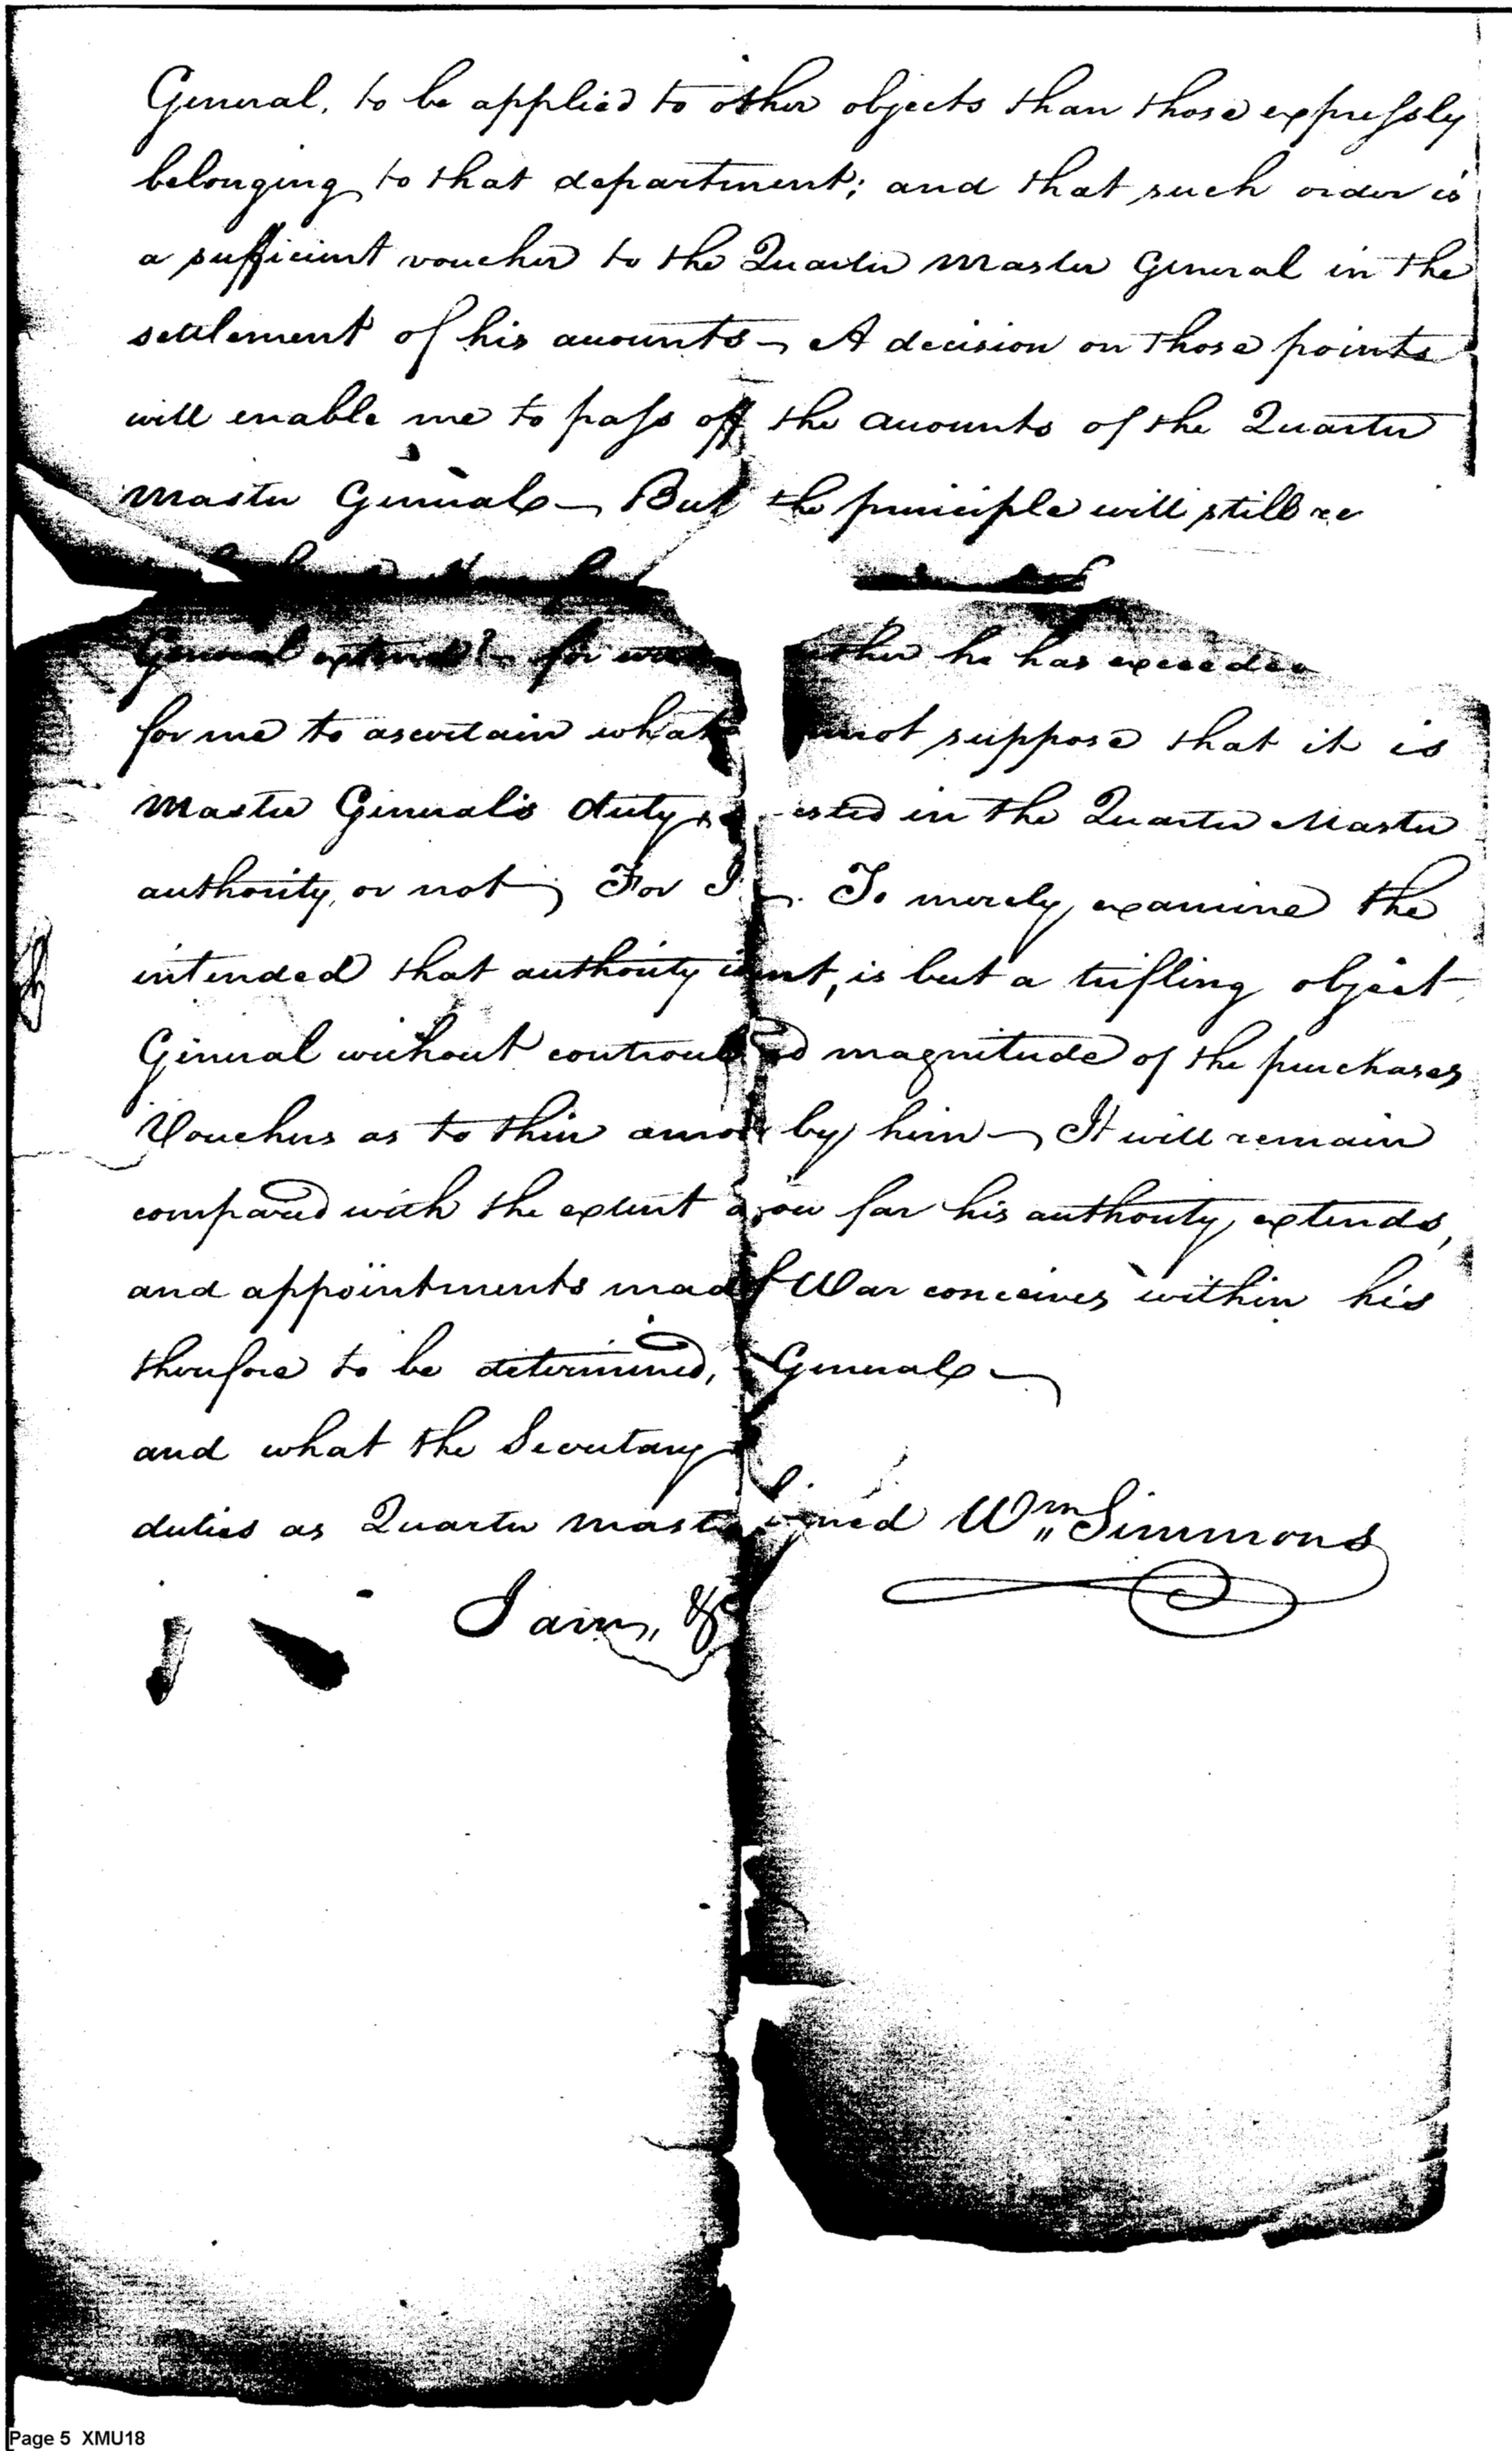 General, to be applied to other objects than those expressly
belonging to that department; and that such order is
a sufficient voucher to the Quarter Master General in the
settlement of his accounts — A decision on those points
will enable me to pass off the accounts of the Quarter
Master General — But the principle will still re
General extend? for ther he has exceeded
for me to ascertain what not suppose that it is
Master General's duty ested in the Quarter Master
authority, or not; For I . To merely examine the
intended that authority unt, is but a trifling object
General without controul nd magnitude of the purchases
Vouchers as to their amo by him — It will remain
compared with the extent a ow far his authority extends,
and appointments mad f War conceives within his
therefore to be determined, General —
and what the Secretary
duties as Quarter Mast signed Wm Simmons
I am, &c
Page 5 XMU18